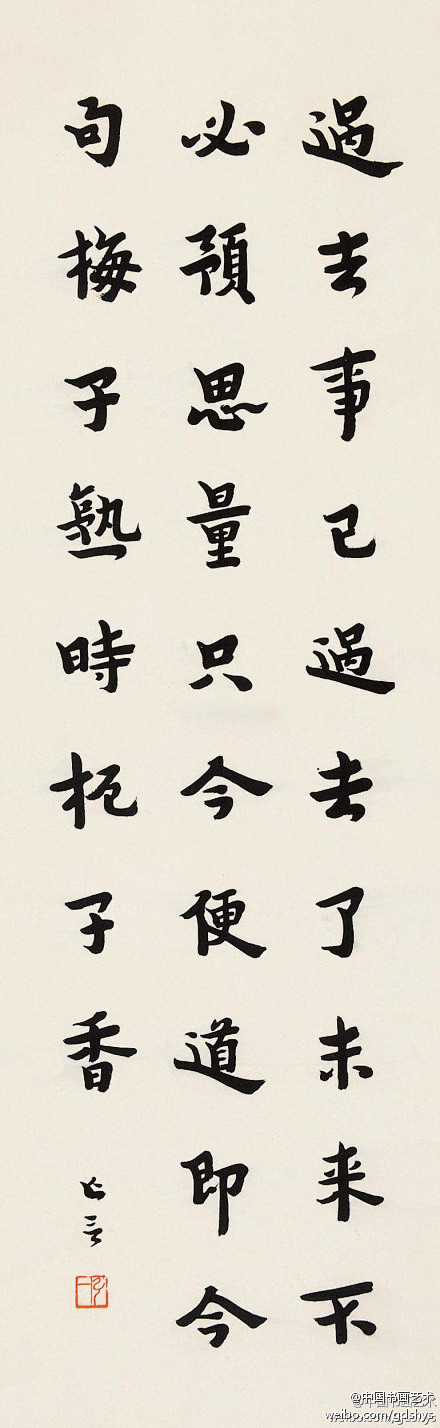 過去事已過去了未来不
必預思量只今便道即今
句梅子熟時枙子香
亡言
@中国书画艺术
weibo.com/gdshys